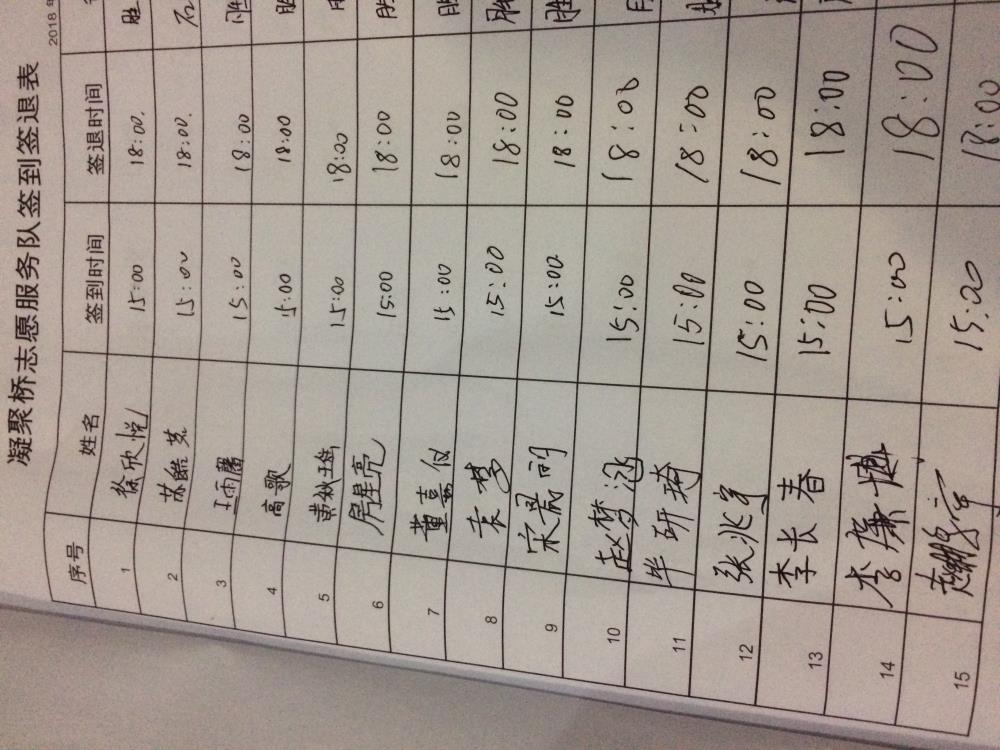 凝聚桥志愿服务队签到签退表
2018
序号 姓名 签到时间 签退时间
1 徐欣悦 15:00 18:00.
2 15:00 18:00.
3 王雨馨 15:00 18:00
4 高歌 15:00 18:00
5 黄秋瑶 15:00 18:00
6 房星亮 15:00 18:00
7 董嘉仪 15:00 18:00
8 袁梦 15:00 18:00
9 宋晨雨 15:00 18:00
10 赵梦涵 15:00 18:00
11 毕研琦 15:00 18:00
12 张兆宇 15:00 18:00
13 李长春 15:00 18:00
14 李廉 15:00 18:00
15 15:00 18:00